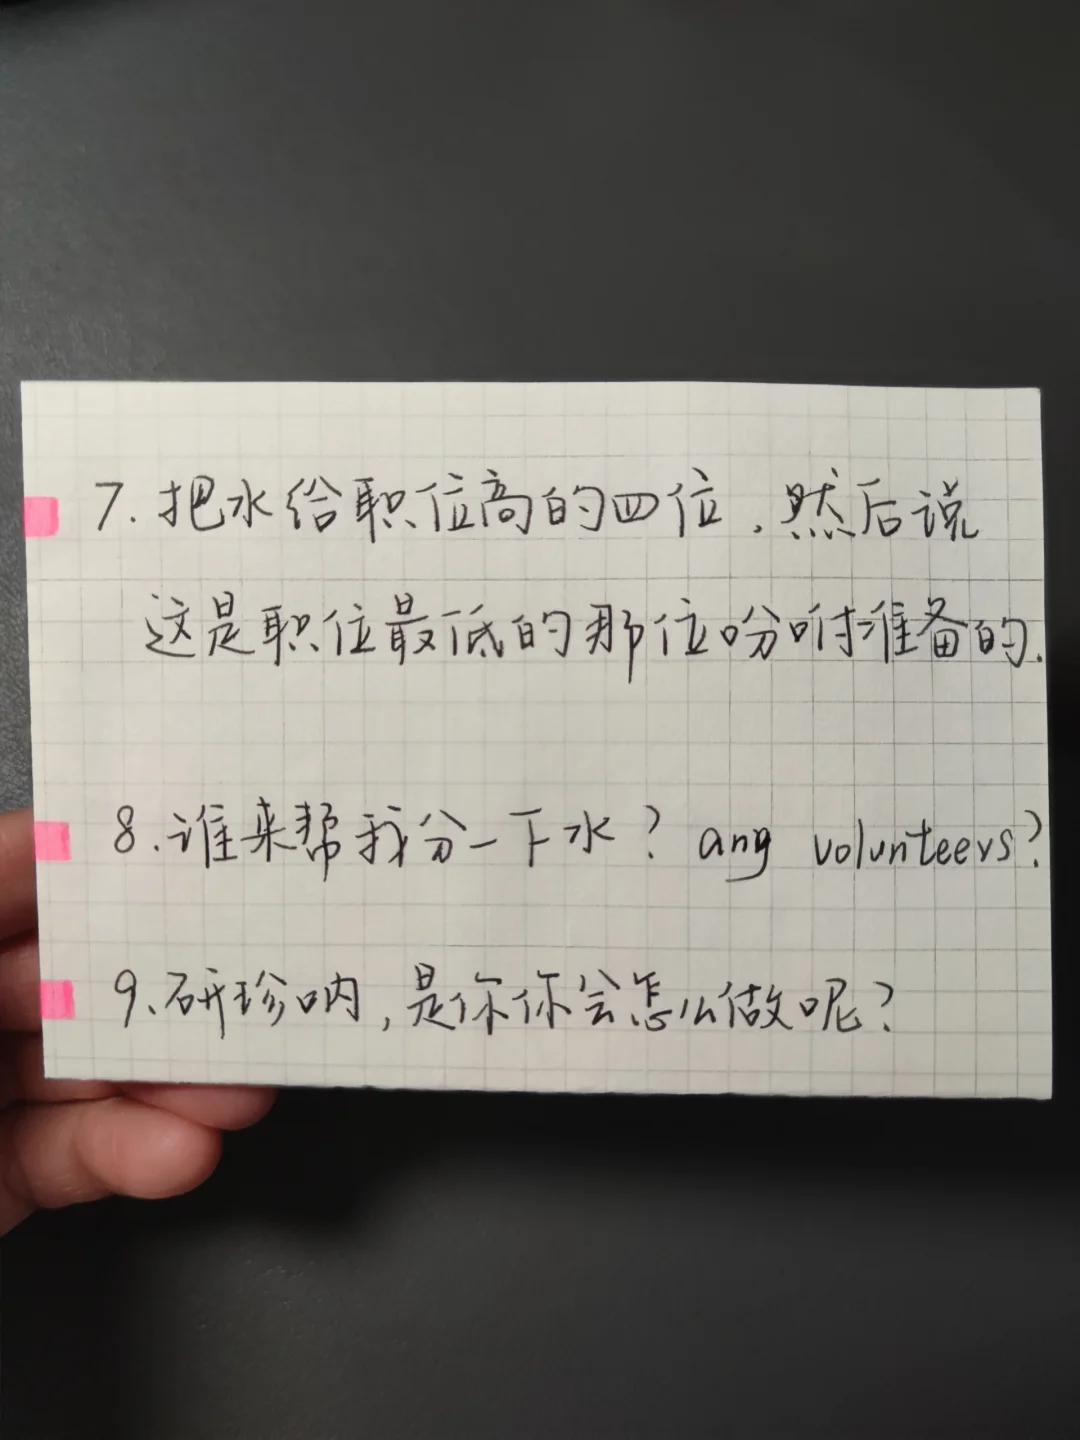 7. 把水给职位高的四位，然后说
这是职位最低的那位吩咐准备的.
8. 谁来帮我分一下水？ any volunteers?
9. 研珍呐，是你你会怎么做呢？